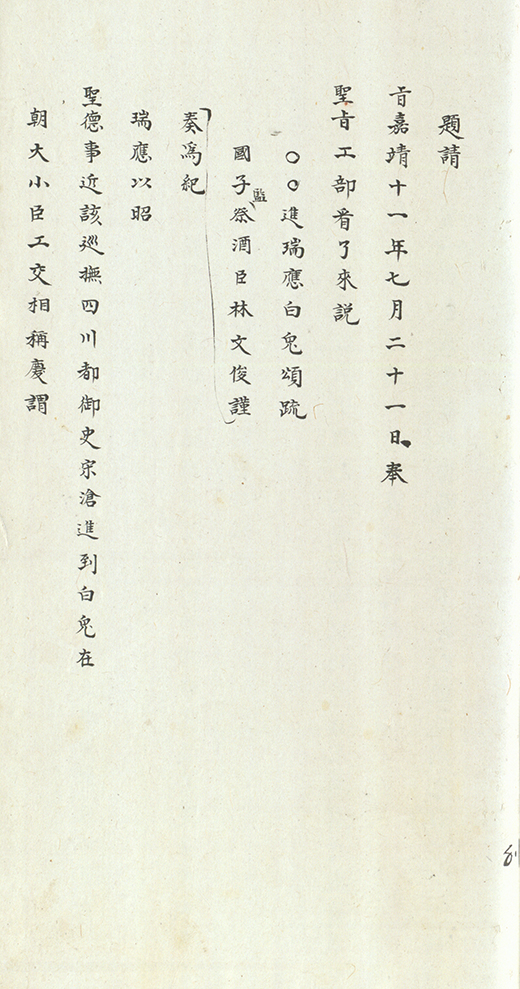 題請
旨嘉靖十一年七月二十一日奉
聖旨工部看了來説
〇〇進瑞應白兔頌疏
國子監祭酒臣林文俊謹
奏爲紀
瑞應以昭
聖德事近該巡撫四川都御史宋滄進到白兔在
朝大小臣工交相稱慶謂